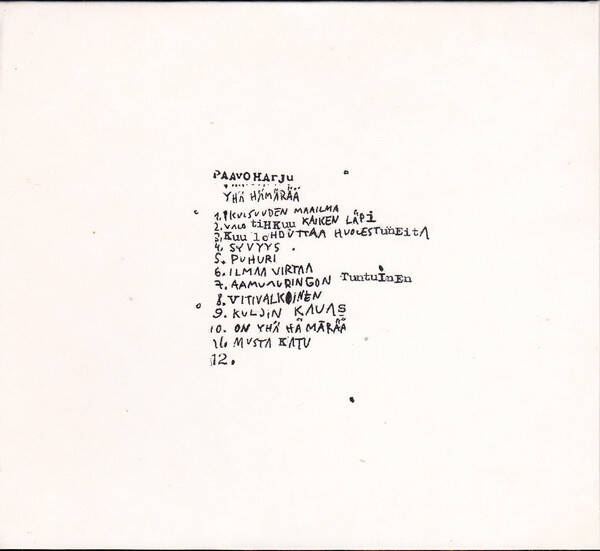 PAAVOHArju
YHÄ HÄMÄRÄÄ
1. IKUISUUDEN MAAILMA
2. VALO tiHKuu KAIKEN LÄPi
3. Kuu loHDUTTAA HUOLESTuNEitA
4. SYVYYS .
5. PUHURI
6. ILMAA VIRTAA
7. AAMUAURINGON TuntuinEn
8. VITIVALKOINEN
9. KULJIN KAUAS
10. ON YHÄ HÄMÄRÄÄ
11. MUSTA KATU
12.